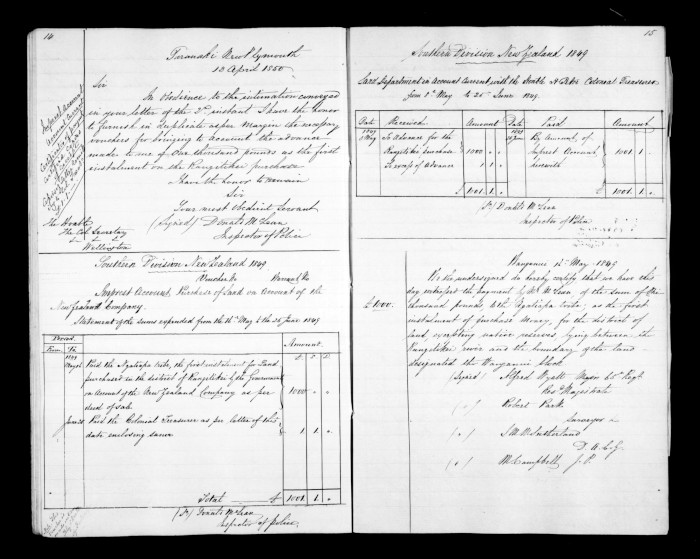 14
Taranaki New Plymouth
13 April 1850
Sir
In Obedience to the intimation conveyed
in your letter of the 2nd instant I have the honor
to furnish in Duplicate as per Margin the necessary
vouchers for bringing to account the advance
made to me of One thousand pounds as the first
instalment on the Rangitikei purchase
I have the honor to remain
Sir
Your most obedient Servant
(Signed) Donald McLean
Inspector of Police
The Honble
The Col. Secretary
Wellington
Imprest Account
Account Current
Southern Division New Zealand 1849
Voucher No Warrant No
Imprest Account, Purchase of Land on Account of the
New Zealand Company.
Statement of the sums expended from the to the 26 June 1849
Period
From To Amount
1849 £ S D
Paid the Ngatiapa tribe, the first instalment for Land
purchased in the district of Rangitikei by the Government
on Account of the New Zealand Company as per 1000 " "
deed of sale
June 26 Paid the Colonial Treasurer as per letter of this
date enclosing same 1 1 "
Total £ 1001 1 "
(Sd) Donald McLean
Inspector of Police
15
Southern Division New Zealand 1849
Land Department in Account Current with the Honble H Petre Colonial Treasurer
from 2nd May to 26th June 1849
Date Received Amount Date Paid Amount
1849 1849
2 May To Advance for the 26 June By Amount of
Rangitikei purchase 1000 " " Imprest Account 1001 1 "
To Advance 1 1 " herewith
£ 1001 1 " £ 1001 1 "
(Sd) Donald McLean
Inspector of Police
Wanganui 15 May 1849
£1000. We the undersigned do hereby certify that we have this
day witnessed the payment by Mr McLean of the sum of One
thousand pounds to the Ngatiapa tribe, as the first
instalment of purchase Money, for the district of
land, excepting native reserves, lying between the
Rangitikei river and the boundary of the land
designated the Wanganui block
(Signed) Alfred Wyatt Major 65th Regt
Rest Magistrate
(") Robert Park
Surveyor
(") Sutherland
(") M. Campbell J.P.